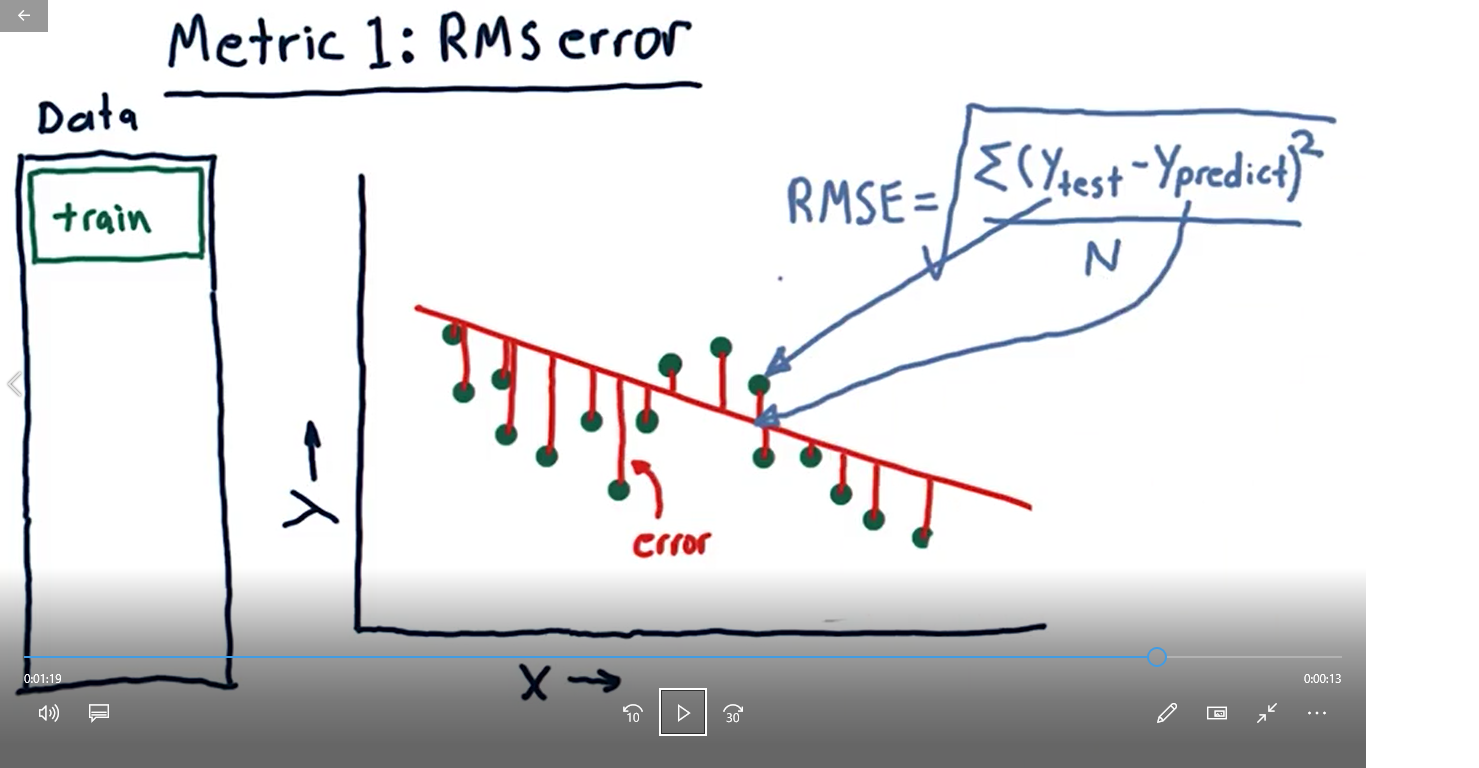 Metric 1: RMS error
Data
train
RMSE = √ Σ(Ytest - Ypredict)²
N
Y →
error
X →
0:01:19
0:00:13
10
30